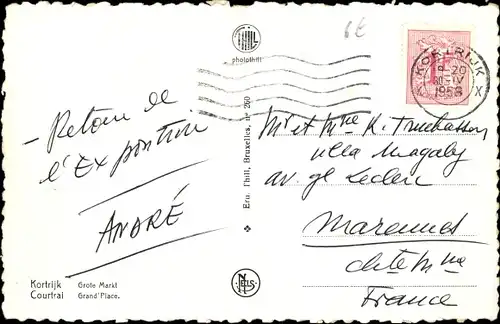 6€
photothill
KORTRIJK
19-20
30-IV
1958
X X
- Retour de
l'Exposition
ANDRÉ
Mr et Mme R.
villa Magaly
av. gl Leclerc
Marennes
chte Mme
France
Ern. Thill, Bruxelles, n° 260
NELS
Kortrijk Grote Markt
Courtrai Grand'Place.